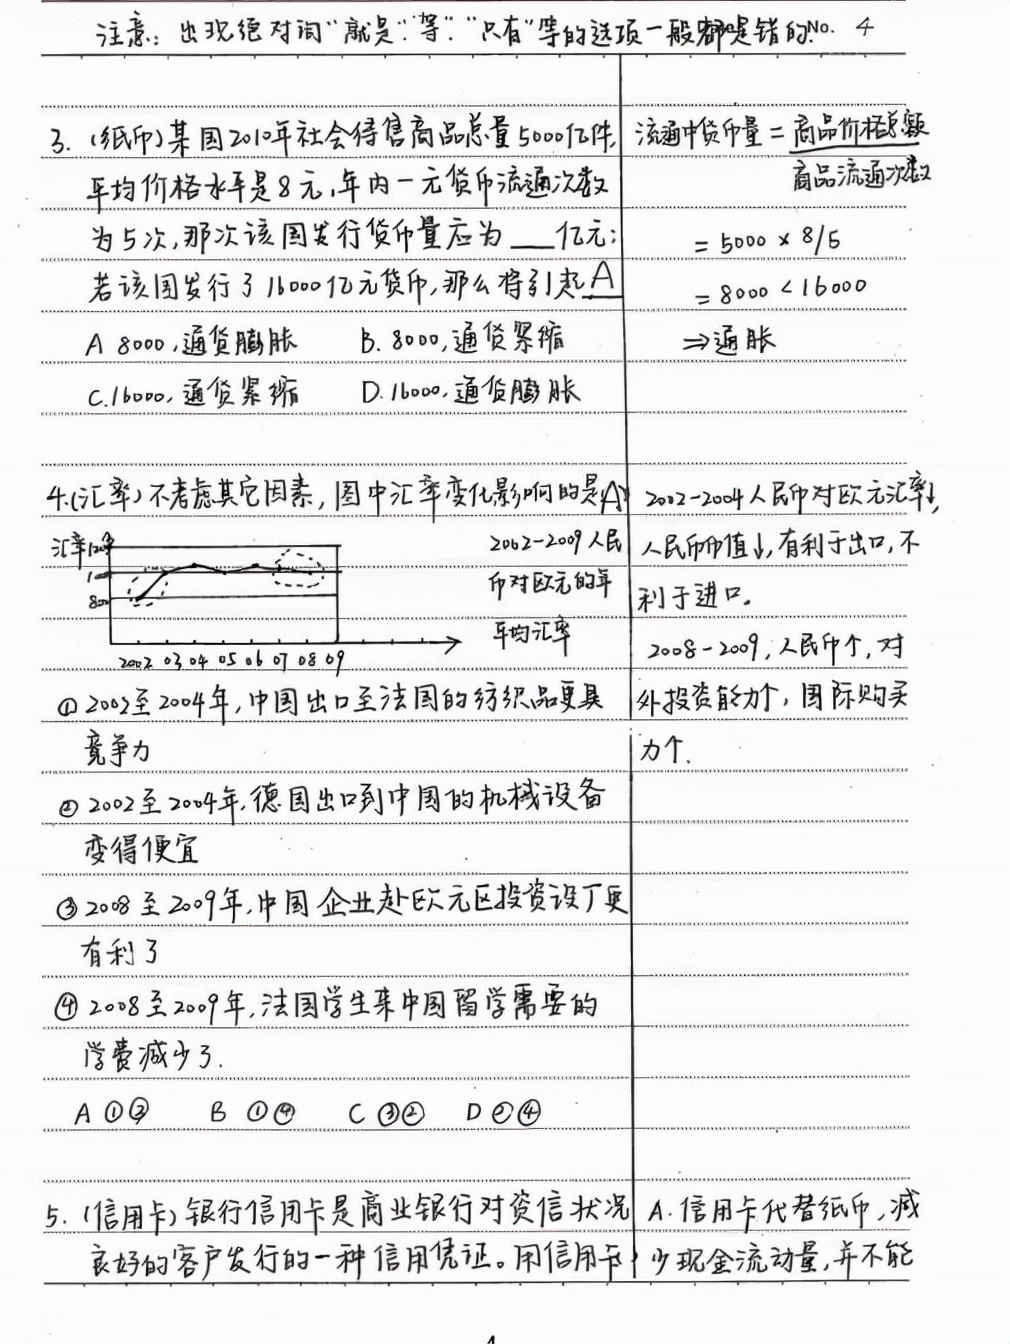 注意：出现绝对词"就是"."等"."只有"等的选项一般都是错的.No. 4
3. (纸币)某国2010年社会待售商品总量5000亿件,
平均价格水平是8元,年内一元货币流通次数
为5次,那次该国发行货币量应为___亿元;
若该国发行了16000亿元货币,那么将引起A
A 8000,通货膨胀 B. 8000,通货紧缩
C.16000,通货紧缩 D.16000,通货膨胀
流通中货币量=商品价格总额
商品流通次数
=5000×8/5
=8000<16000
⇒通胀
4.(汇率)不考虑其它因素,图中汇率变化影响的是(A)
汇率
800
2002 03 04 05 06 07 08 09
2002-2009人民
币对欧元的年
平均汇率
①2002至2004年,中国出口至法国的纺织品更具
竞争力
②2002至2004年,德国出口到中国的机械设备
变得便宜
③2008至2009年,中国企业赴欧元区投资设厂更
有利了
④2008至2009年,法国学生来中国留学需要的
学费减少了.
A ①③ B ①④ C ③② D ②④
2002-2004人民币对欧元汇率↓,
人民币币值↓,有利于出口,不
利于进口。
2008-2009,人民币↑,对
外投资能力↑,国际购买
力↑.
5.(信用卡)银行信用卡是商业银行对资信状况
良好的客户发行的一种信用凭证。用信用卡
A.信用卡代替纸币,减
少现金流动量,并不能
4